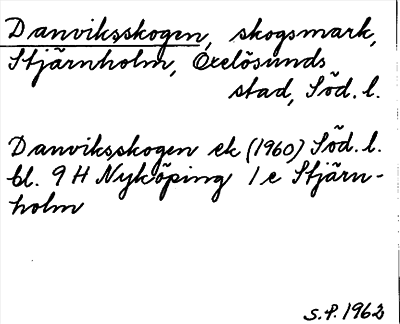 Danviksskogen, skogsmark,
Stjärnholm, Oxelösunds
stad, Söd. l.
Danviksskogen ek (1960) Söd. l.
bl. 9 H Nyköping 1 e Stjärn-
holm
S.P. 1962